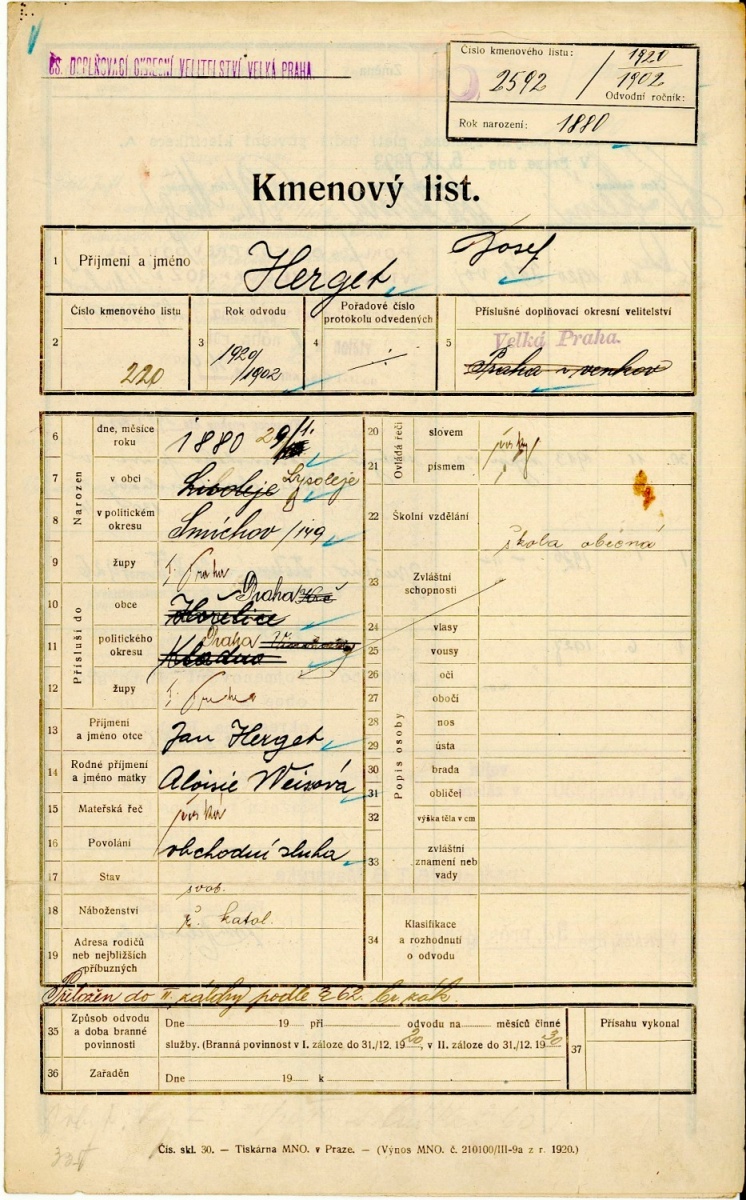 ČS. DOPLŇOVACÍ OKRESNÍ VELITELSTVÍ VELKÁ PRAHA
Číslo kmenového listu:
2592 / 1920
1902
Odvodní ročník:
Rok narození: 1880
Kmenový list.
1 Příjmení a jméno Herget Josef
Číslo kmenového listu
2 220
Rok odvodu
3 1920/1902
Pořadové číslo protokolu odvedených
4
Příslušné doplňovací okresní velitelství
5 Velká Praha.
Praha venkov
Narozen
6 dne, měsíce roku 1880 29/1.
7 v obci Liboleje Lysoleje
8 v politickém okresu Smíchov
9 župy Praha
Přísluší do
10 obce Hořelice Praha
11 politického okresu Kladno Praha
12 župy Praha
13 Příjmení a jméno otce Jan Herget
14 Rodné příjmení a jméno matky Aloisie Weisová
15 Mateřská řeč
16 Povolání obchodní sluha
17 Stav svob.
18 Náboženství ř. katol.
19 Adresa rodičů neb nejbližších příbuzných
Ovládá řeči
20 slovem
21 písmem
22 Školní vzdělání škola obecná
23 Zvláštní schopnosti
Popis osoby
24 vlasy
25 vousy
26 oči
27 obočí
28 nos
29 ústa
30 brada
31 obličej
32 výška těla v cm
33 zvláštní znamení neb vady
34 Klasifikace a rozhodnutí o odvodu
Přeložen do II. zálohy podle § 62. br. zák.
35 Způsob odvodu a doba branné povinnosti
Dne 19 při odvodu na měsíců činné
služby. (Branná povinnost v I. záloze do 31./12. 1920, v II. záloze do 31./12. 1930
36 Zařaděn
Dne 19 k
37 Přísahu vykonal
Čís. skl. 30. — Tiskárna MNO. v Praze. — (Výnos MNO. č. 210100/III-9a z r. 1920.)